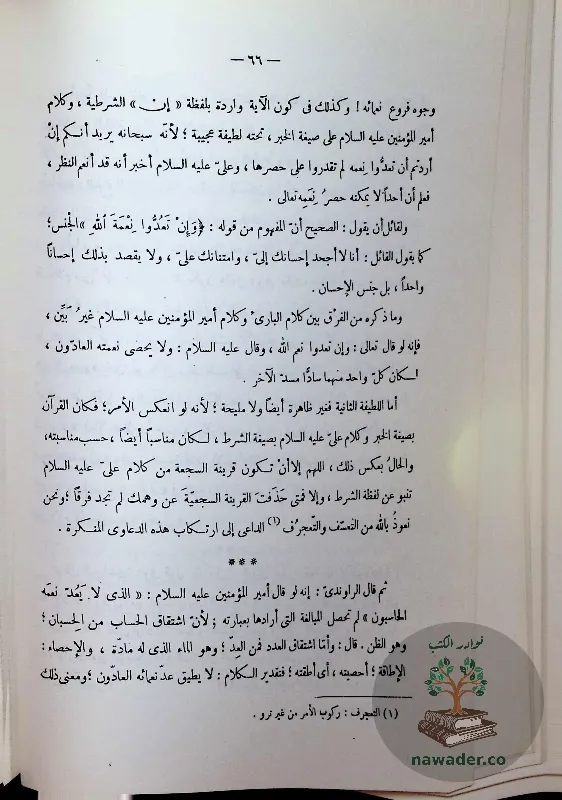 — ٦٦ —
وجوه فروع نعمائه ! وكذلك فى كون الآية واردة بلفظة « إن » الشرطية ، وكلام
أمير المؤمنين عليه السلام على صيغة الخبر ، تحته لطيفة عجيبة ؛ لأنّه سبحانه يريد أنكم إنْ
أردتم أن تعدُّوا نِعمه لم تقدروا على حصرها ، وعلىّ عليه السلام أخبر أنه قد أنعم النظر ،
فعلم أن أحداً لا يمكنه حصرُ نِعَمِه تعالى .
ولقائل أن يقول : الصحيح أنّ المفهوم من قوله : ﴿وَإِنْ تَعُدُّوا نِعْمَةَ اللهِ﴾ الجنس ؛
كما يقول القائل : أنا لا أجحد إحسانك إلىّ ، وامتنانك علىّ ، ولا يقصد بذلك إحساناً
واحداً ، بل جنس الإحسان .
وما ذكره من الفرْق بين كلام البارئ وكلام أمير المؤمنين عليه السلام غيرُ بَيِّن ،
فإنه لو قال تعالى : وإن تعدوا نعم الله ، وقال عليه السلام : ولا يحصى نعمته العادّون ،
لكان كلّ واحد منهما سادًّا مسدّ الآخر .
أما اللطيفة الثانية فغير ظاهرة أيضاً ولا مليحة ؛ لأنه لو انعكس الأمر؛ فكان القرآن
بصيغة الخبر وكلام علىّ عليه السلام بصيغة الشرط ، لكان مناسباً أيضاً ، حسب مناسبته،
والحالُ بعكس ذلك ، اللهم إلا أنْ تكون قرينة السجعة من كلام علىّ عليه السلام
تنبو عن لفظة الشرط ، وإلا فمتى حَذَفتَ القرينة السجعيّة عن وهمك لم تجد فرقًا ؛ ونحن
نعوذُ بالله من التعسّف والتّعجرُف (١) الداعى إلى ارتكاب هذه الدعاوى المنكرة .
***
ثم قال الراوندىّ : إنه لو قال أمير المؤمنين عليه السلام : « الذى لا يَعُدّ نعمَه
الحاسبون » لم تحصل المبالغة التى أرادها بعبارته ؛ لأنّ اشتقاق الحساب من الحِسبان ؛
وهو الظن . قال : وأمّا اشتقاق العدد فمن العِدّ ؛ وهو الماء الذى له مادّة ، والإحصاء :
الإطاقة ؛ أحصيته ، أى أطقته ؛ فتقدير الكلام : لا يطيق عدّ نعمائه العادّون ؛ ومعنى ذلك
(١) التعجرف : ركوب الأمر من غير ترو .
نوادر الكتب
nawader.co